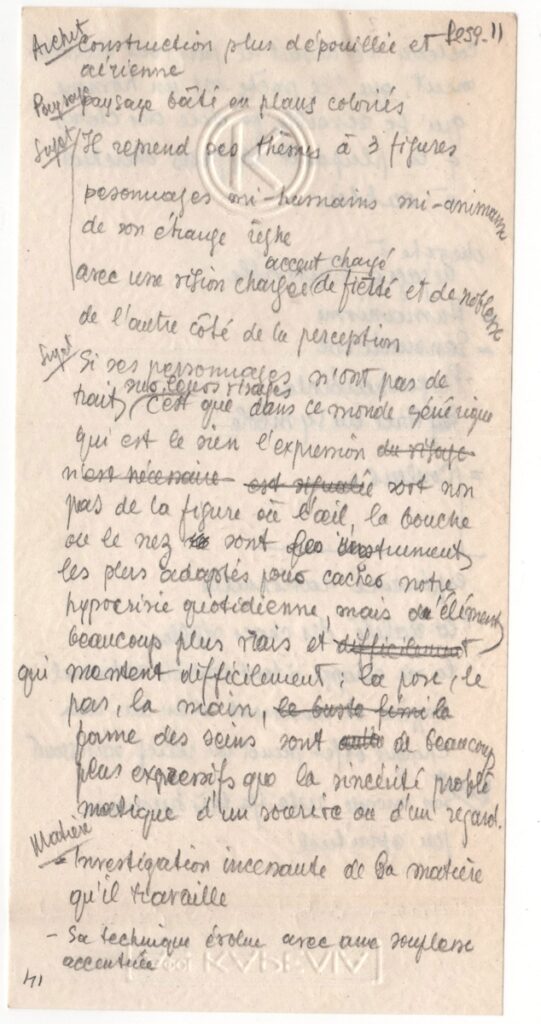 P.259-11
Archit construction plus dépouillée et
aérienne
Paysage paysage bâti en plans coloriés
Sujet Il reprend ses thèmes à 3 figures
personnages mi-humains mi-animaux
de son étrange règne
accent chargé
avec une vision chargée de fierté et de noblesse
de l'autre côté de la perception
Sujet Si ses personnages n'ont pas de
sur leurs visages
trait, c'est que dans ce monde générique
qui est le sien l'expression du visage
n'est nécessaire est signalée sort non
pas de la figure où l'œil, la bouche
ou le nez sont les instruments
les plus adaptés pour cacher notre
hypocrisie quotidienne, mais d'éléments
beaucoup plus vrais et difficilement
qui mentent difficilement ; la pose, le
pas, la main, le buste la
forme des seins sont de beaucoup
plus expressifs que la sincérité problé
matique d'un sourire ou d'un regard.
Matière
- Investigation incessante de la matière
qu'il travaille
- Sa technique évolue avec une souplesse
accentuée
14